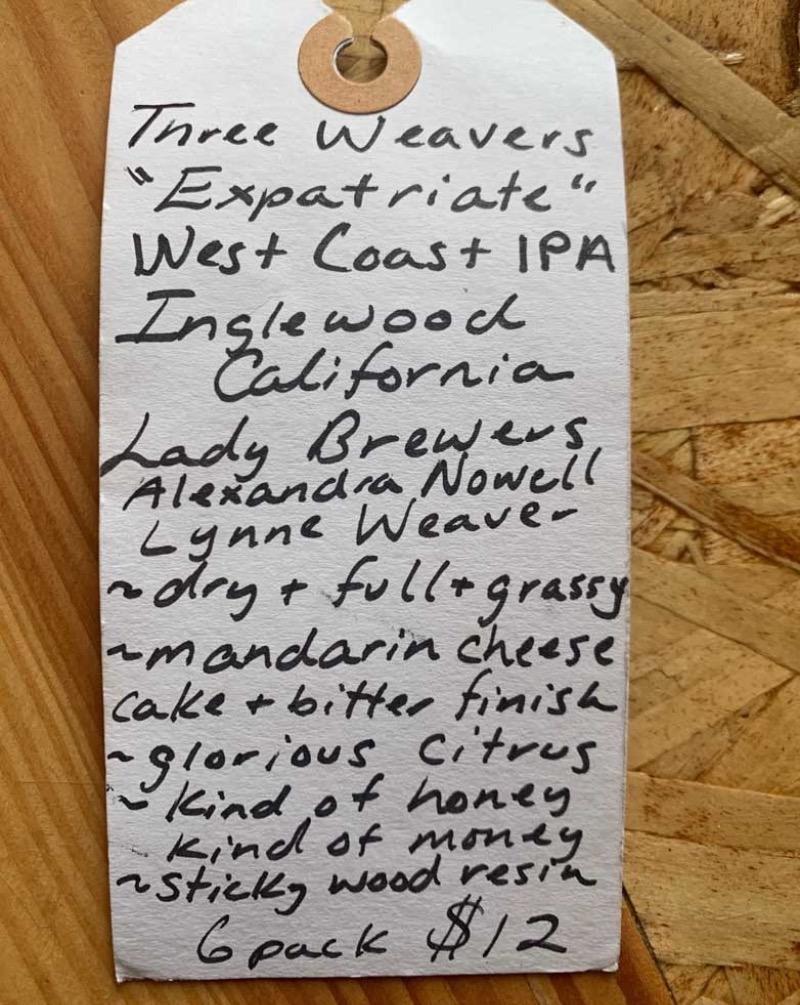 Three Weavers
"Expatriate"
West Coast IPA
Inglewood
California
Lady Brewers
Alexandra Nowell
Lynne Weaver
~dry + full + grassy
~mandarin cheese
cake + bitter finish
~glorious citrus
~kind of honey
kind of money
~sticky wood resin
6 pack $12